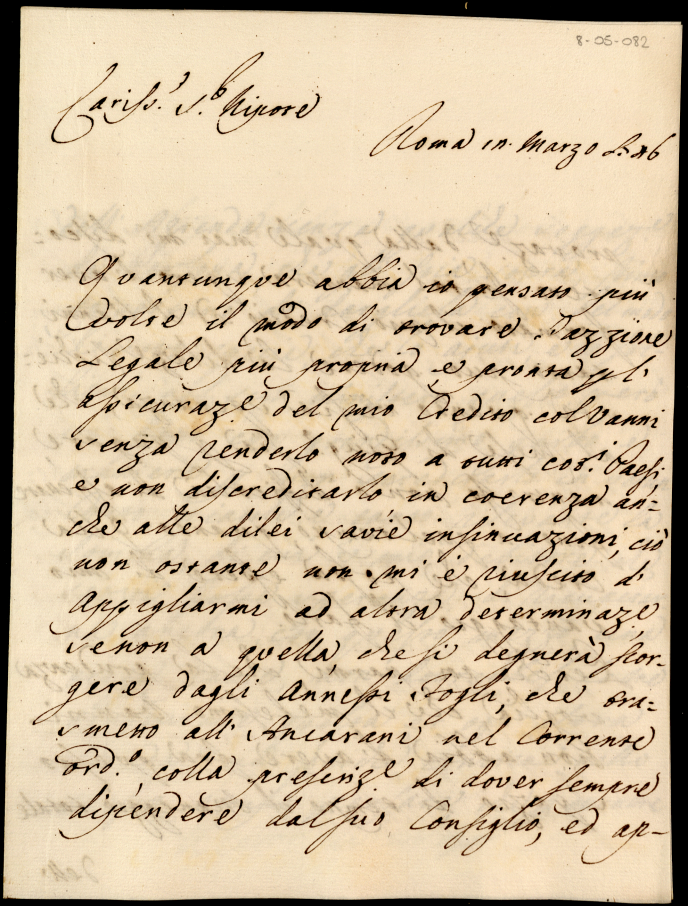 8-05-082
Cariss.º S.r Nipote
Roma in Marzo
Quantunque abbia io pensato più
volte il modo di trovare l'azzione
Legale più propria, e pronta p l'
assicuraz.e del mio Credito col Vanni
senza renderlo noto a tutti cot.i Paesi
e non discreditarlo in coerenza an=
che alle di lei savie insinuazioni, ciò
non ostante non mi è riuscito d'
appigliarmi ad altra determinaz.e,
senon a quella, che si degnerà scor-
gere dagli Annessi Fogli, che tra=
smetto all'Ancarani nel Corrente
ord.º, colla di dover sempre
dipendere dal suo Consiglio, ed ap-